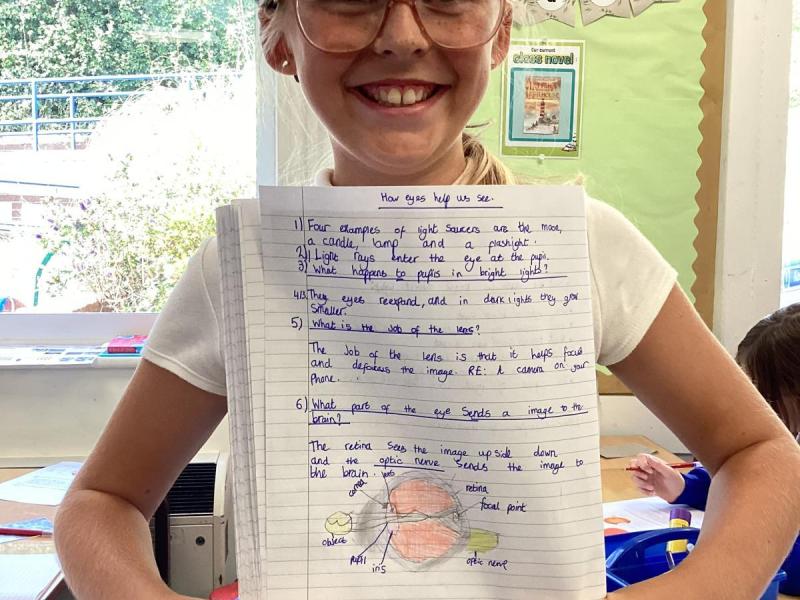 Our current
class novel
How eyes help us see.
1) Four examples of light saucers are the moon,
a candle, lamp and a flashlight.
2) Light rays enter the eye at the pupil.
3) What happens to pupis in bright lights?
4/3. They eyes reexpand, and in dark lights they grow
smaller.
5) What is the Job of the lens?
The Job of the lens is that it helps focus
and defocuses the image. RE: A camera on your
Phone.
6) What part of the eye sends a image to the
brain?
The retina sees the image up side down
and the optic nerve sends the image to
the brain.
lens
cornea
retina
focal point
object
pupil
iris
optic nerve